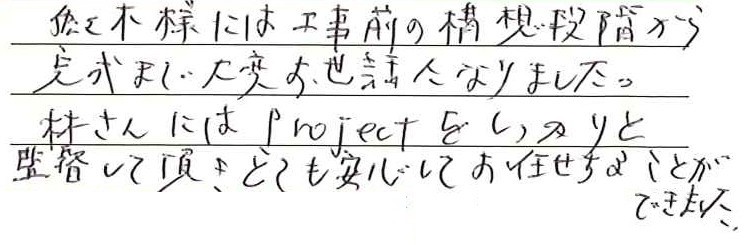 佐々木様には工事前の構想段階から
完成まで大変お世話になりました。
林さんにはProjectをしっかりと
監督して頂きとても安心してお任せすることが
できました。